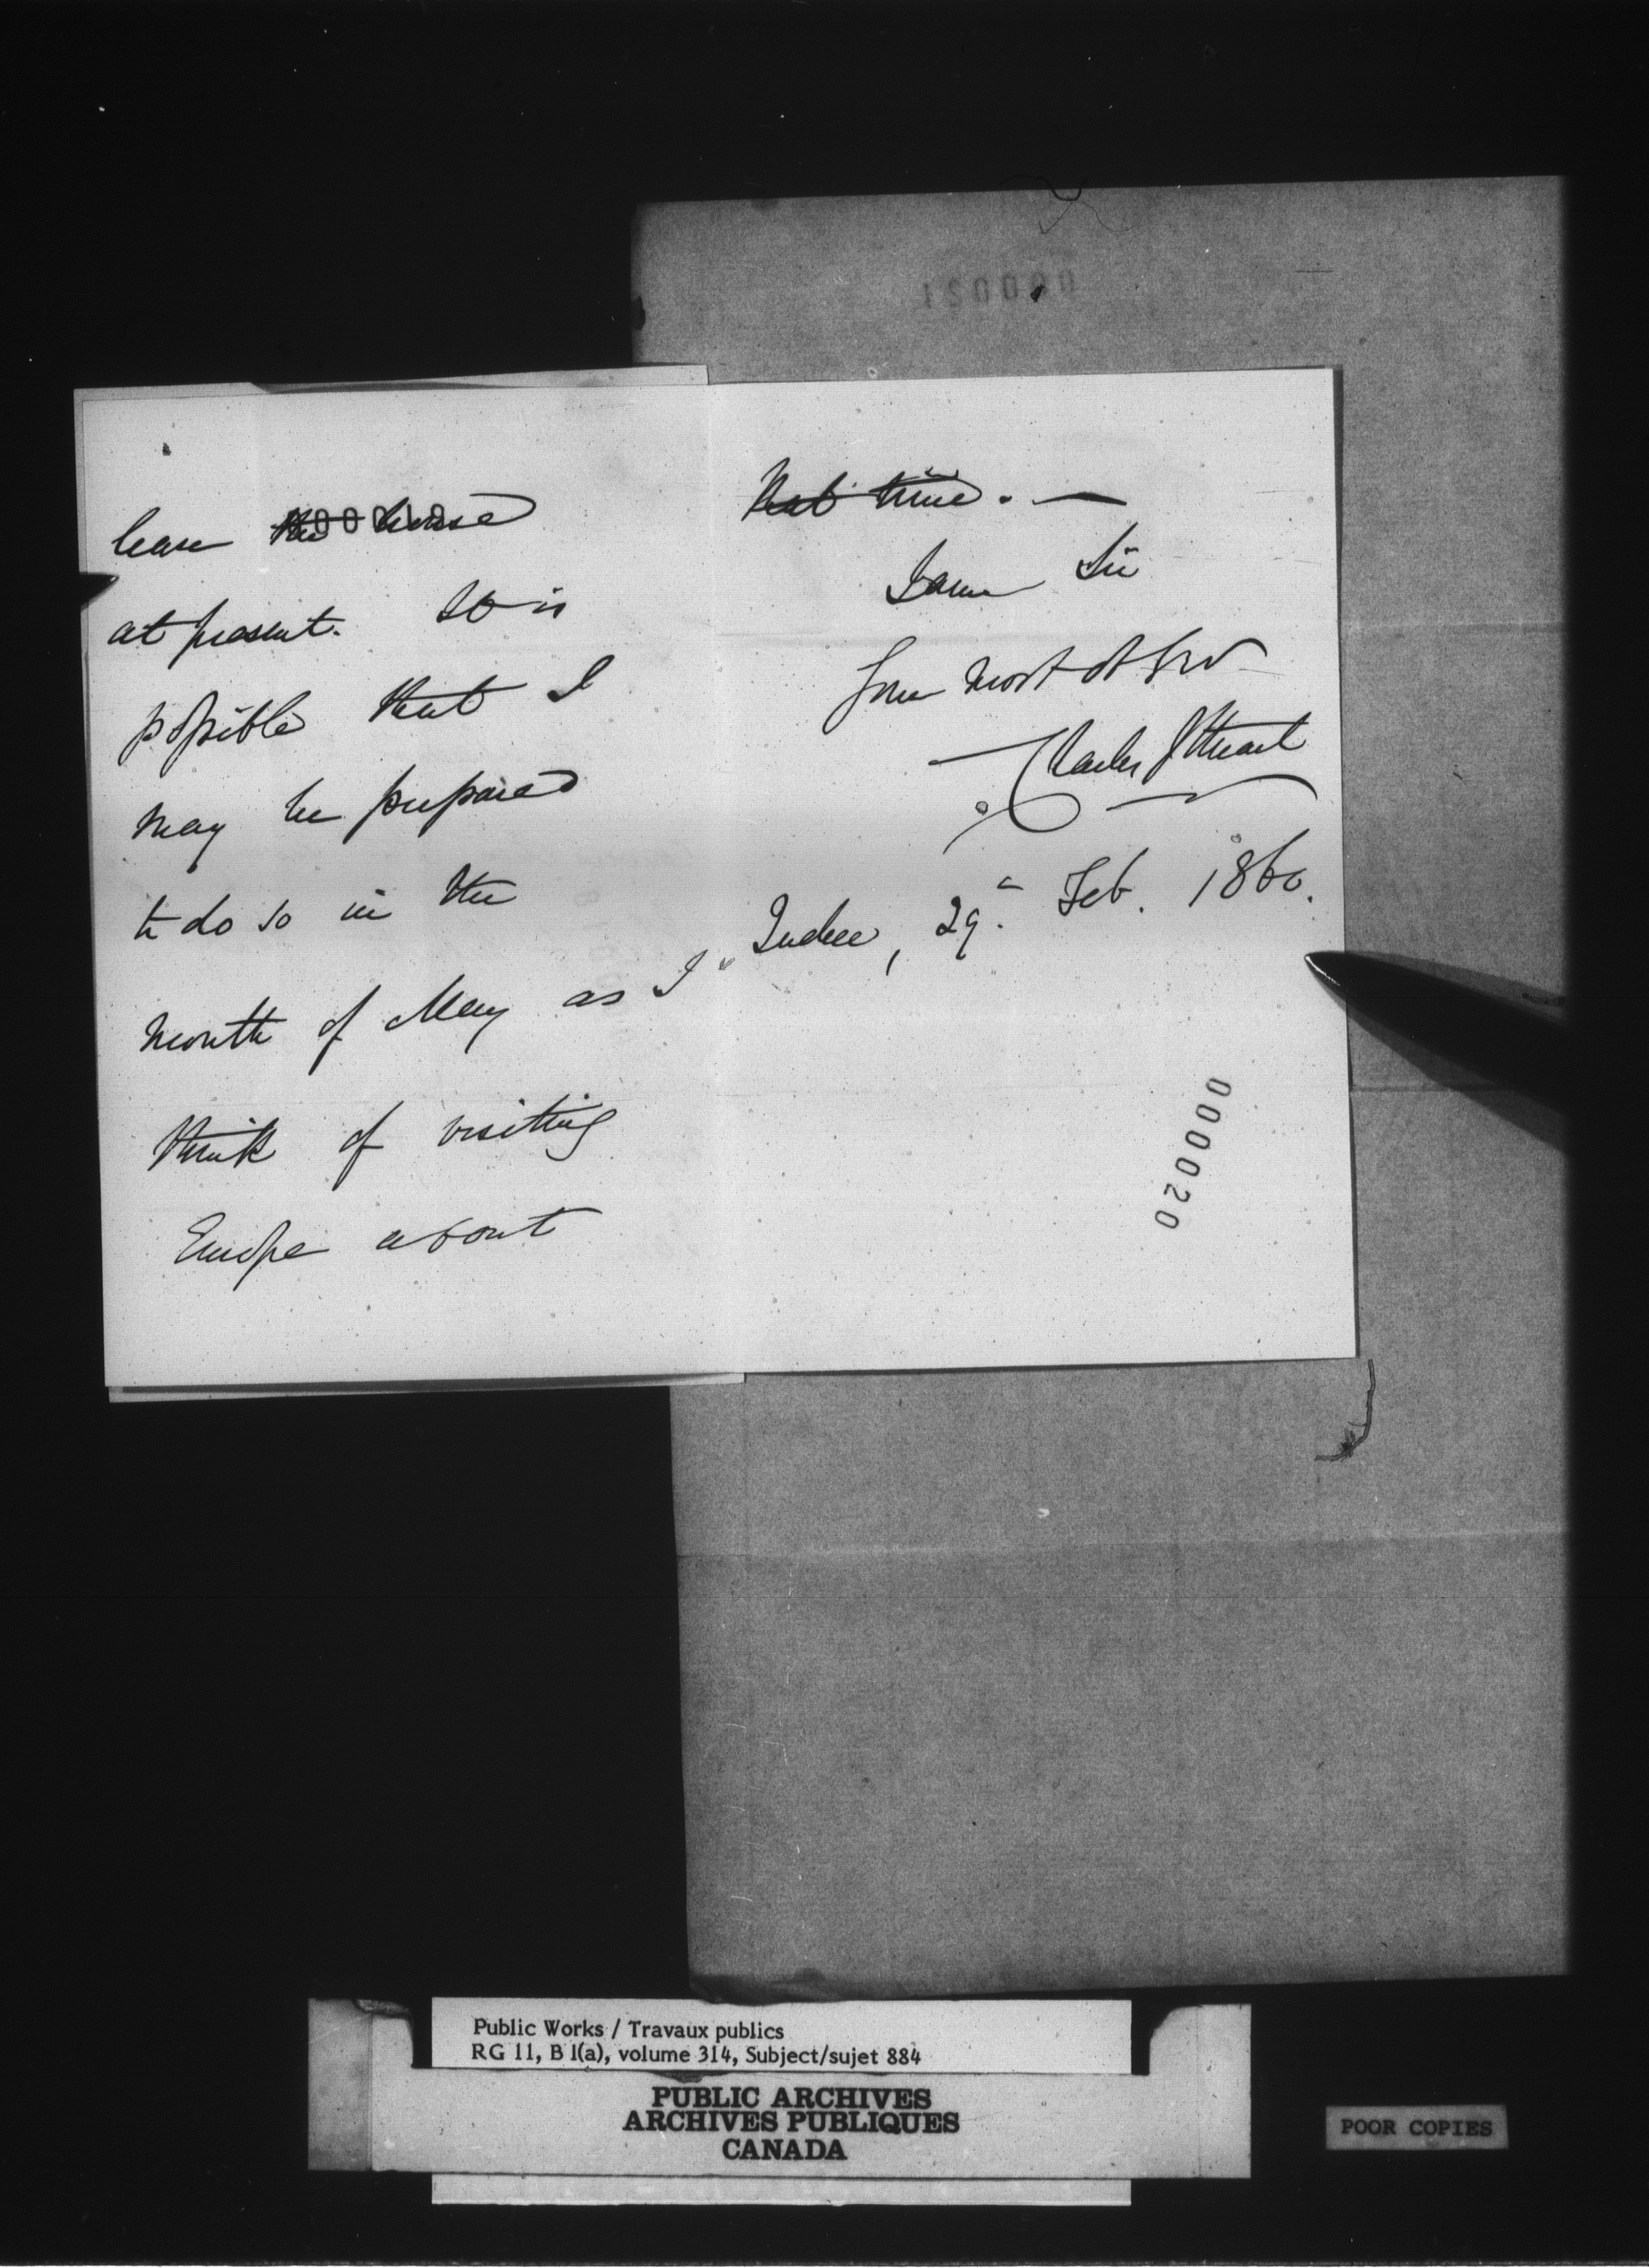 000021
lease the house
at present. It is
possible that I
may be prepared
to do so in the
month of May as I
think of visiting
Europe about
that time. —
I am Sir
Your most obt Srv
Charles J Stuart
Quebec, 29th Feb. 1860.
000020
Public Works / Travaux publics
RG 11, B 1(a), volume 314, Subject/sujet 884
PUBLIC ARCHIVES
ARCHIVES PUBLIQUES
CANADA
POOR COPIES